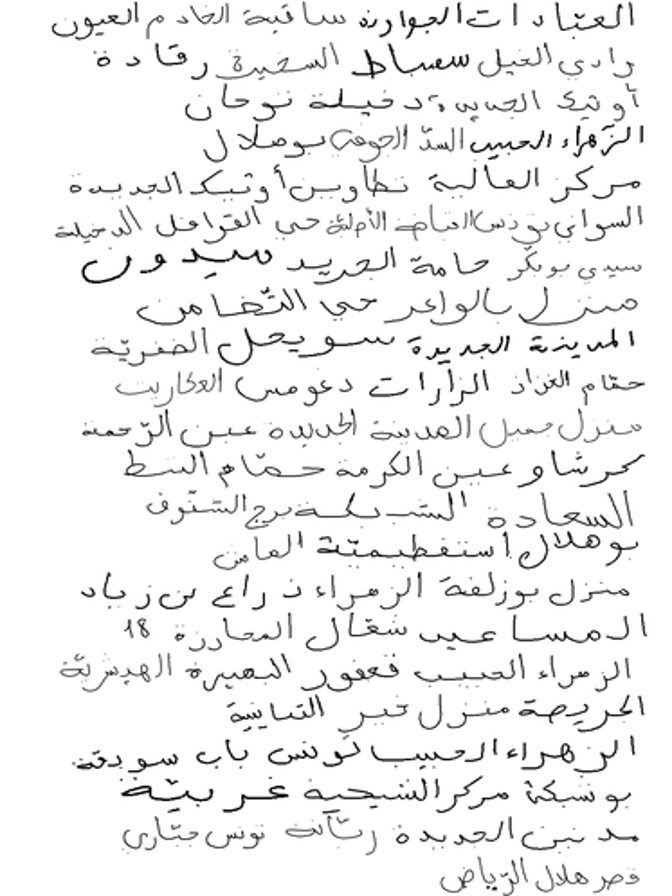 العبادات الجوارنة ساقية الخادم العيون
وادي الخيل سمباط السخيرة رقادة
أوتيك الجديدة دخيلة نوحان
الزهراء الحبيب السدّ الجوفي بوهلال
مركز العالية تطاوين أوتيك الجديدة
السواني تونس الفياضة حي القوافل الدخيلة
سيدي بوبكر حامة الجريد سيدون
منزل بالواعر حي التّضامن
المدينة الجديدة سويحل الصخريّة
حمّام الغزاز الزارات دغومس العكاريت
منزل جميل المدينة الجديدة عين الرّحمة
بحرشاو عين الكرمة حمّام الشط
السعادة الشبيكة برج الشنّوف
بوهلال استفطيميّة
منزل بوزلفة الزهراء ذراع بن زياد
المساعيد شقال المحارزة 18
الزهراء الحبيب قعفور البحيرة الهيشريّة
الحريصة منزل خير التباينية
الزهراء الحبيب تونس باب سويقة
بوشبكة مركز الشيحية غريبيّة
مدنين الجديدة رمّانة تونس
قصر هلال الرّياض